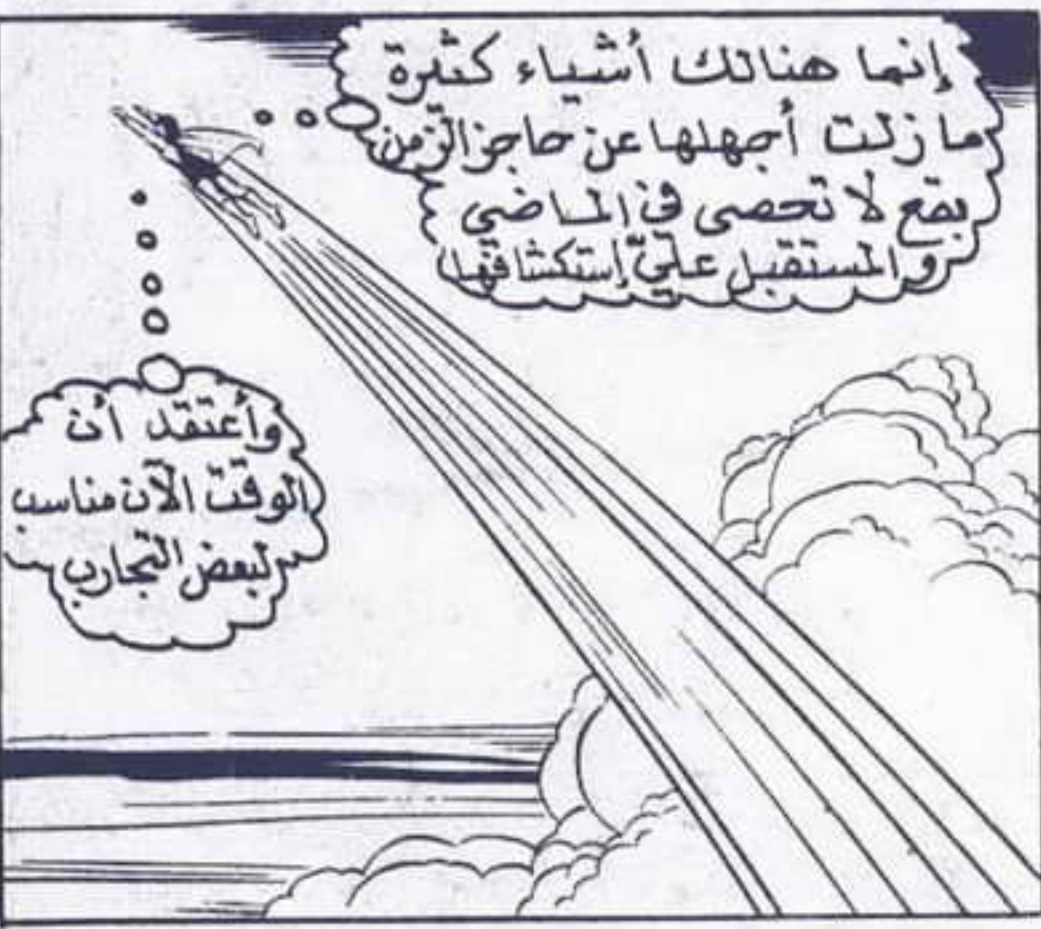 إنما هنالك أشياء كثيرة
ما زلت أجهلها عن حاجز الزّمن
بقع لا تحصى في الماضي
والمستقبل عليّ إستكشافها
وأعتقد أن
الوقت الآن مناسب
لبعض التّجارب